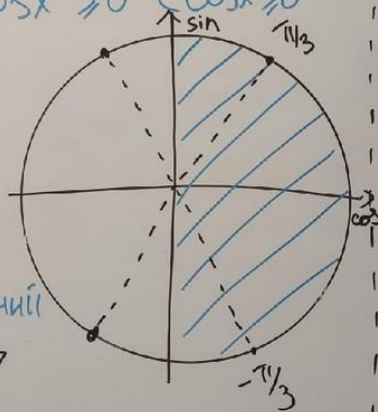 cosx ≥0 (cosx≥0
sin
π/3
cos
-π/3